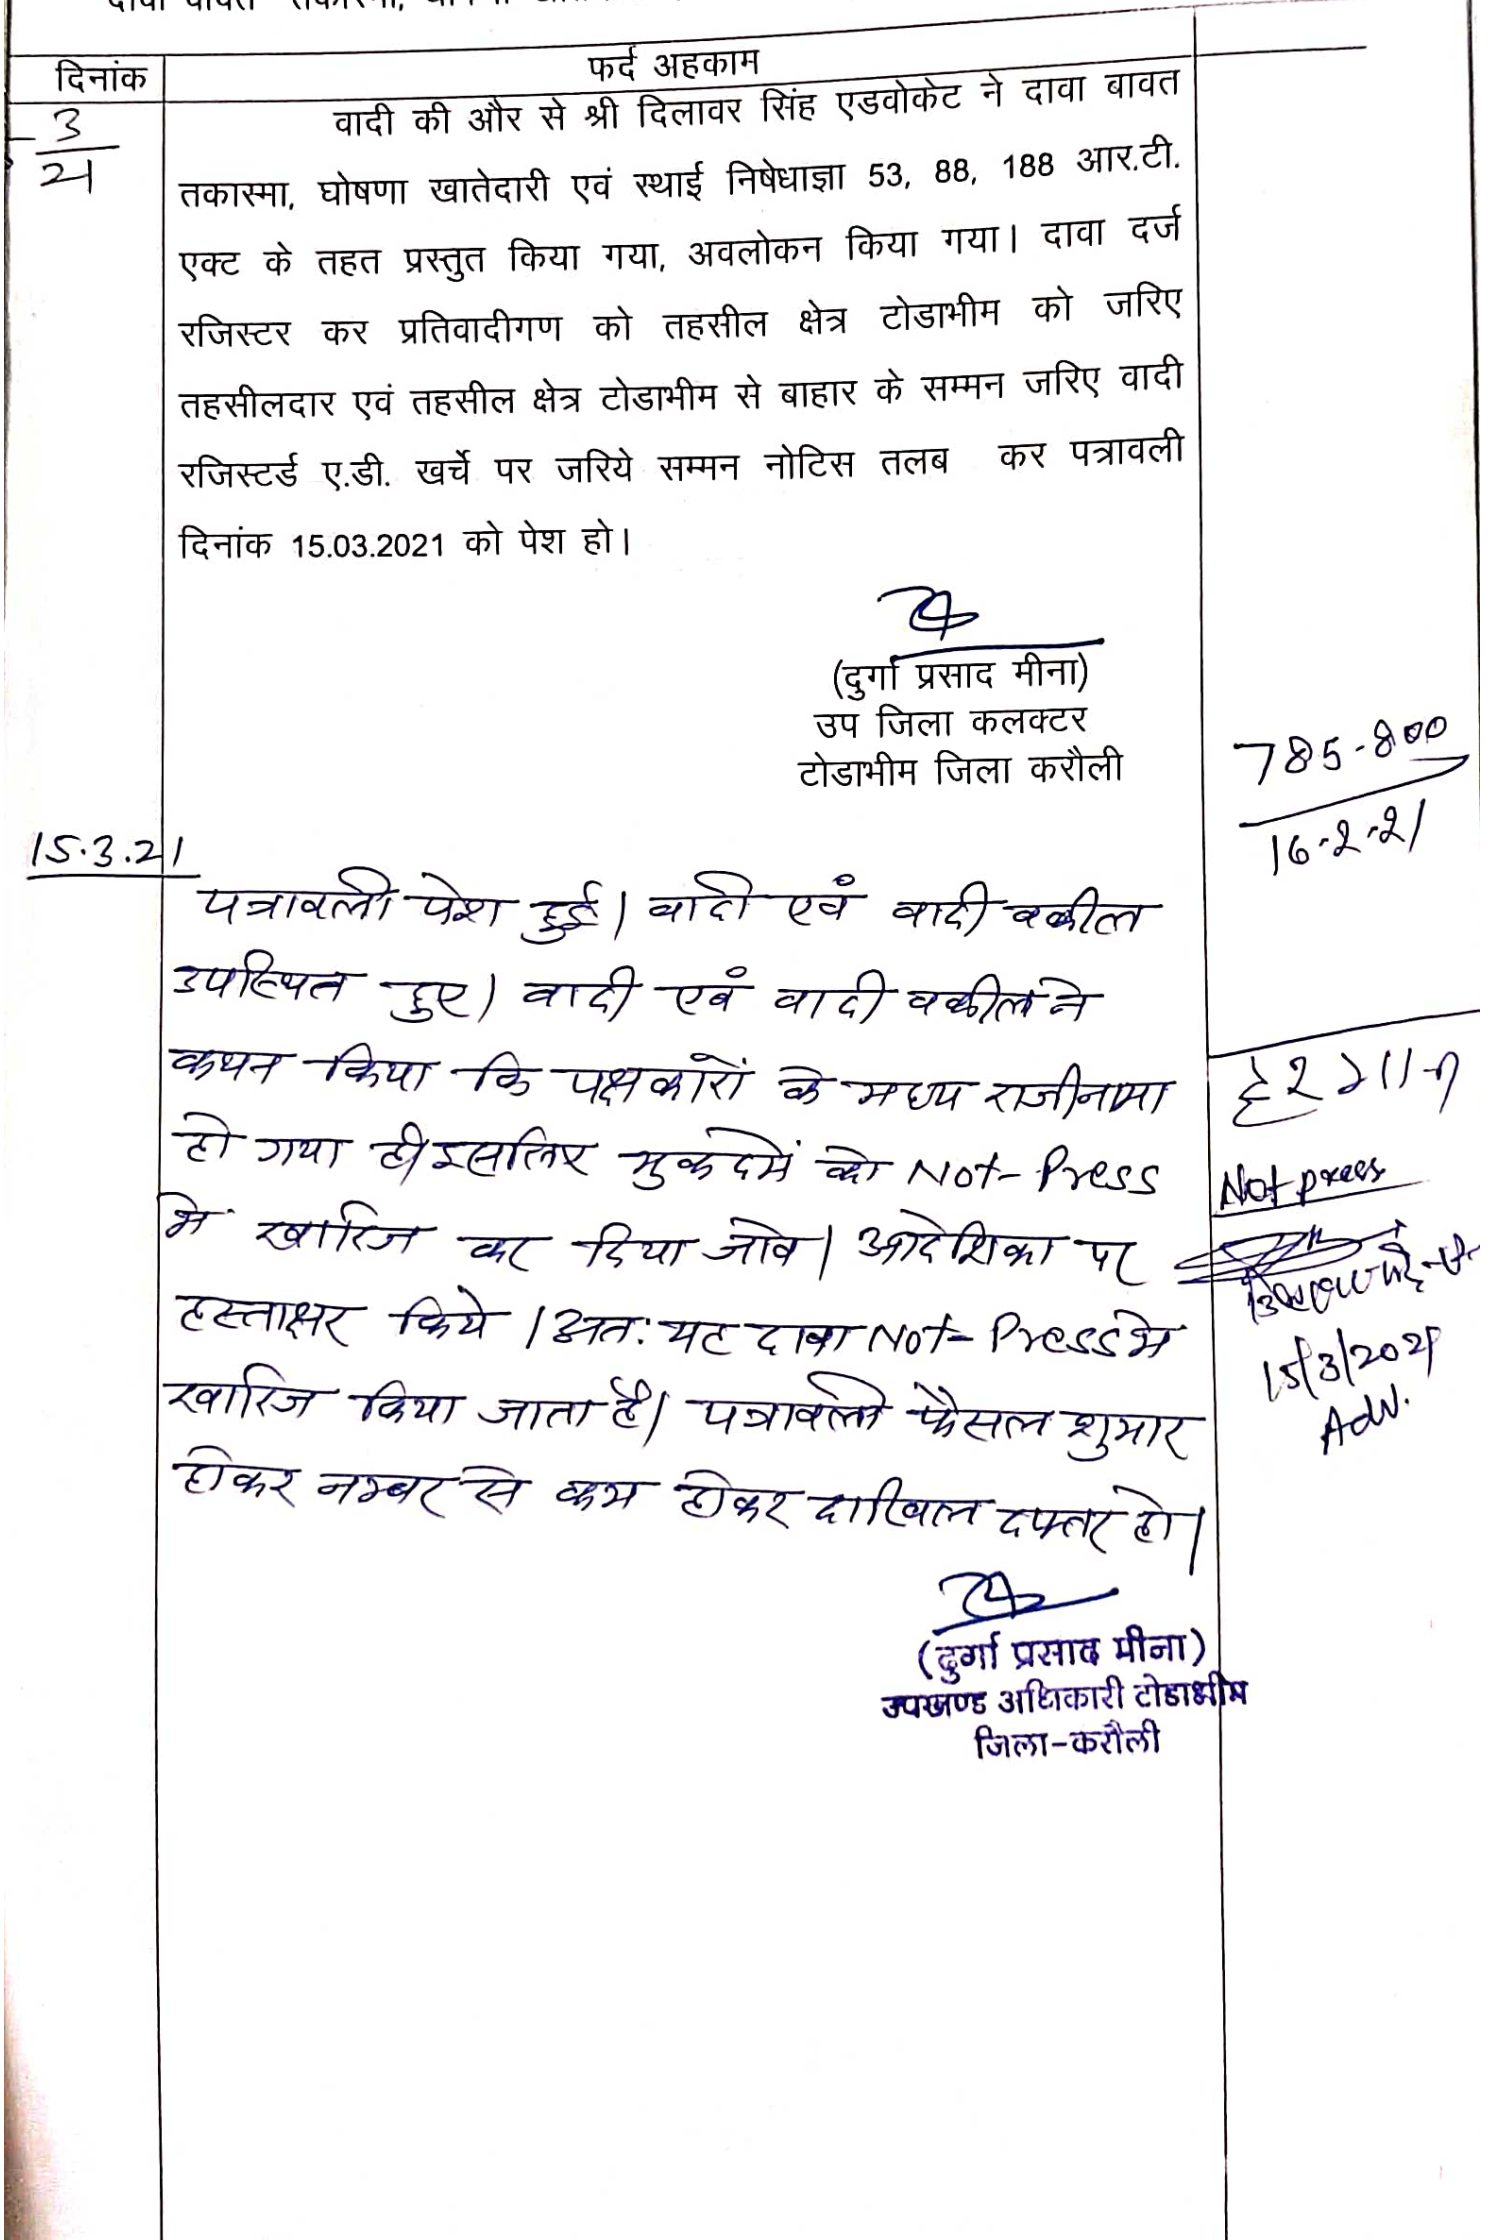 दिनांक
फर्द अहकाम
3
21
वादी की और से श्री दिलावर सिंह एडवोकेट ने दावा बावत
तकास्मा, घोषणा खातेदारी एवं स्थाई निषेधाज्ञा 53, 88, 188 आर.टी.
एक्ट के तहत प्रस्तुत किया गया, अवलोकन किया गया। दावा दर्ज
रजिस्टर कर प्रतिवादीगण को तहसील क्षेत्र टोडाभीम को जरिए
तहसीलदार एवं तहसील क्षेत्र टोडाभीम से बाहार के सम्मन जरिए वादी
रजिस्टर्ड ए.डी. खर्चे पर जरिये सम्मन नोटिस तलब कर पत्रावली
दिनांक 15.03.2021 को पेश हो।
(दुर्गा प्रसाद मीना)
उप जिला कलक्टर
टोडाभीम जिला करौली
785-800
16-2-21
15.3.21
पत्रावली पेश हुई। वादी एवं वादी वकील
उपस्थित हुए। वादी एवं वादी वकील ने
कथन किया कि पक्षकारों के मध्य राजीनामा
हो गया है। इसलिए मुकदमें को Not-Press
में खारिज कर दिया जावे। आदेशिका पर
हस्ताक्षर किये। अतः यह दावा Not-Press में
खारिज किया जाता है। पत्रावली फैसल शुमार
होकर नम्बर से कम होकर दाखिल दफ्तर हो।
Not press
15/3/2021
Adv.
(दुर्गा प्रसाद मीना)
उपखण्ड अधिकारी टोडाभीम
जिला-करौली